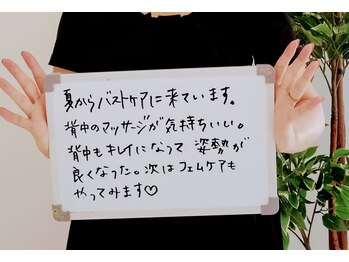 夏からバストケアに来ています。
背中のマッサージが気持ちいい。
背中もキレイになって 姿勢が
良くなった。次はフェムケアも
やってみます♡